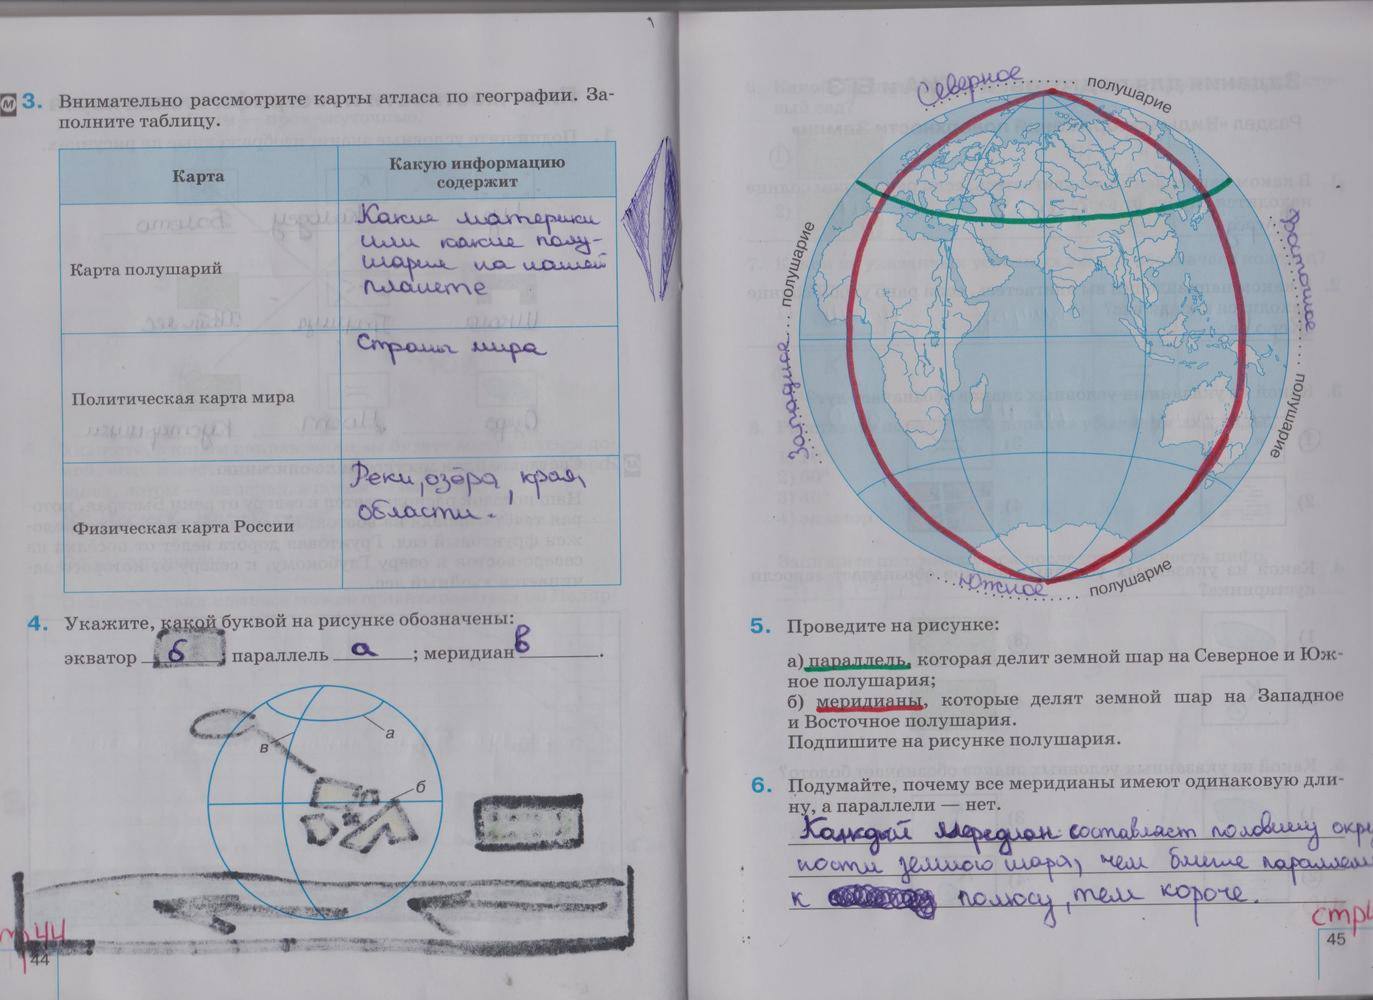 3. Внимательно рассмотрите карты атласа по географии. За-
полните таблицу.
Карта
Какую информацию
содержит
Карта полушарий
Какие материки
или какие полу-
шария на нашей
планете
Политическая карта мира
Страны мира
Физическая карта России
Реки, озёра, края,
области.
4. Укажите, какой буквой на рисунке обозначены:
экватор б параллель а ; меридиан в .
а
в
б
44
Северное полушарие
Западное полушарие
Восточное полушарие
Южное полушарие
5. Проведите на рисунке:
а) параллель, которая делит земной шар на Северное и Юж-
ное полушария;
б) меридианы, которые делят земной шар на Западное
и Восточное полушария.
Подпишите на рисунке полушария.
6. Подумайте, почему все меридианы имеют одинаковую дли-
ну, а параллели — нет.
Каждый меридиан составляет половину окру
ности земного шара, чем ближе параллел
к полюсу, тем короче.
стр
45